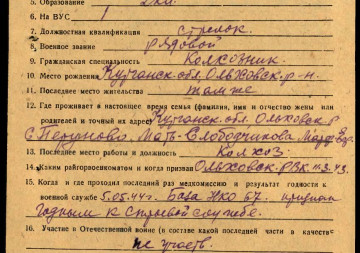 5. Образование 2 кл.
6. На ВУС 1
7. Должностная квалификация стрелок
8. Военное звание рядовой
9. Гражданская специальность Колхозник
10. Место рождения обл. Ольховск. р-н.
11. Последнее место жительства там же
12. Где проживает в настоящее время семья (фамилия, имя и отчество жены или
родителей и точный их адрес) обл. Ольховск. р
с. Мать-Слободчикова
13. Последнее место работы и должность Колхоз
14. Каким райгорвоенкоматом и когда призван Ольховск. РВК 3.43.
15. Когда и где проходил последний раз медкомиссию и результат годности к
военной службе 5.05.44 г. База НКО 67. признан
годным к строевой службе.
16. Участие в Отечественной войне (в составе какой последней части в качестве
не участв.